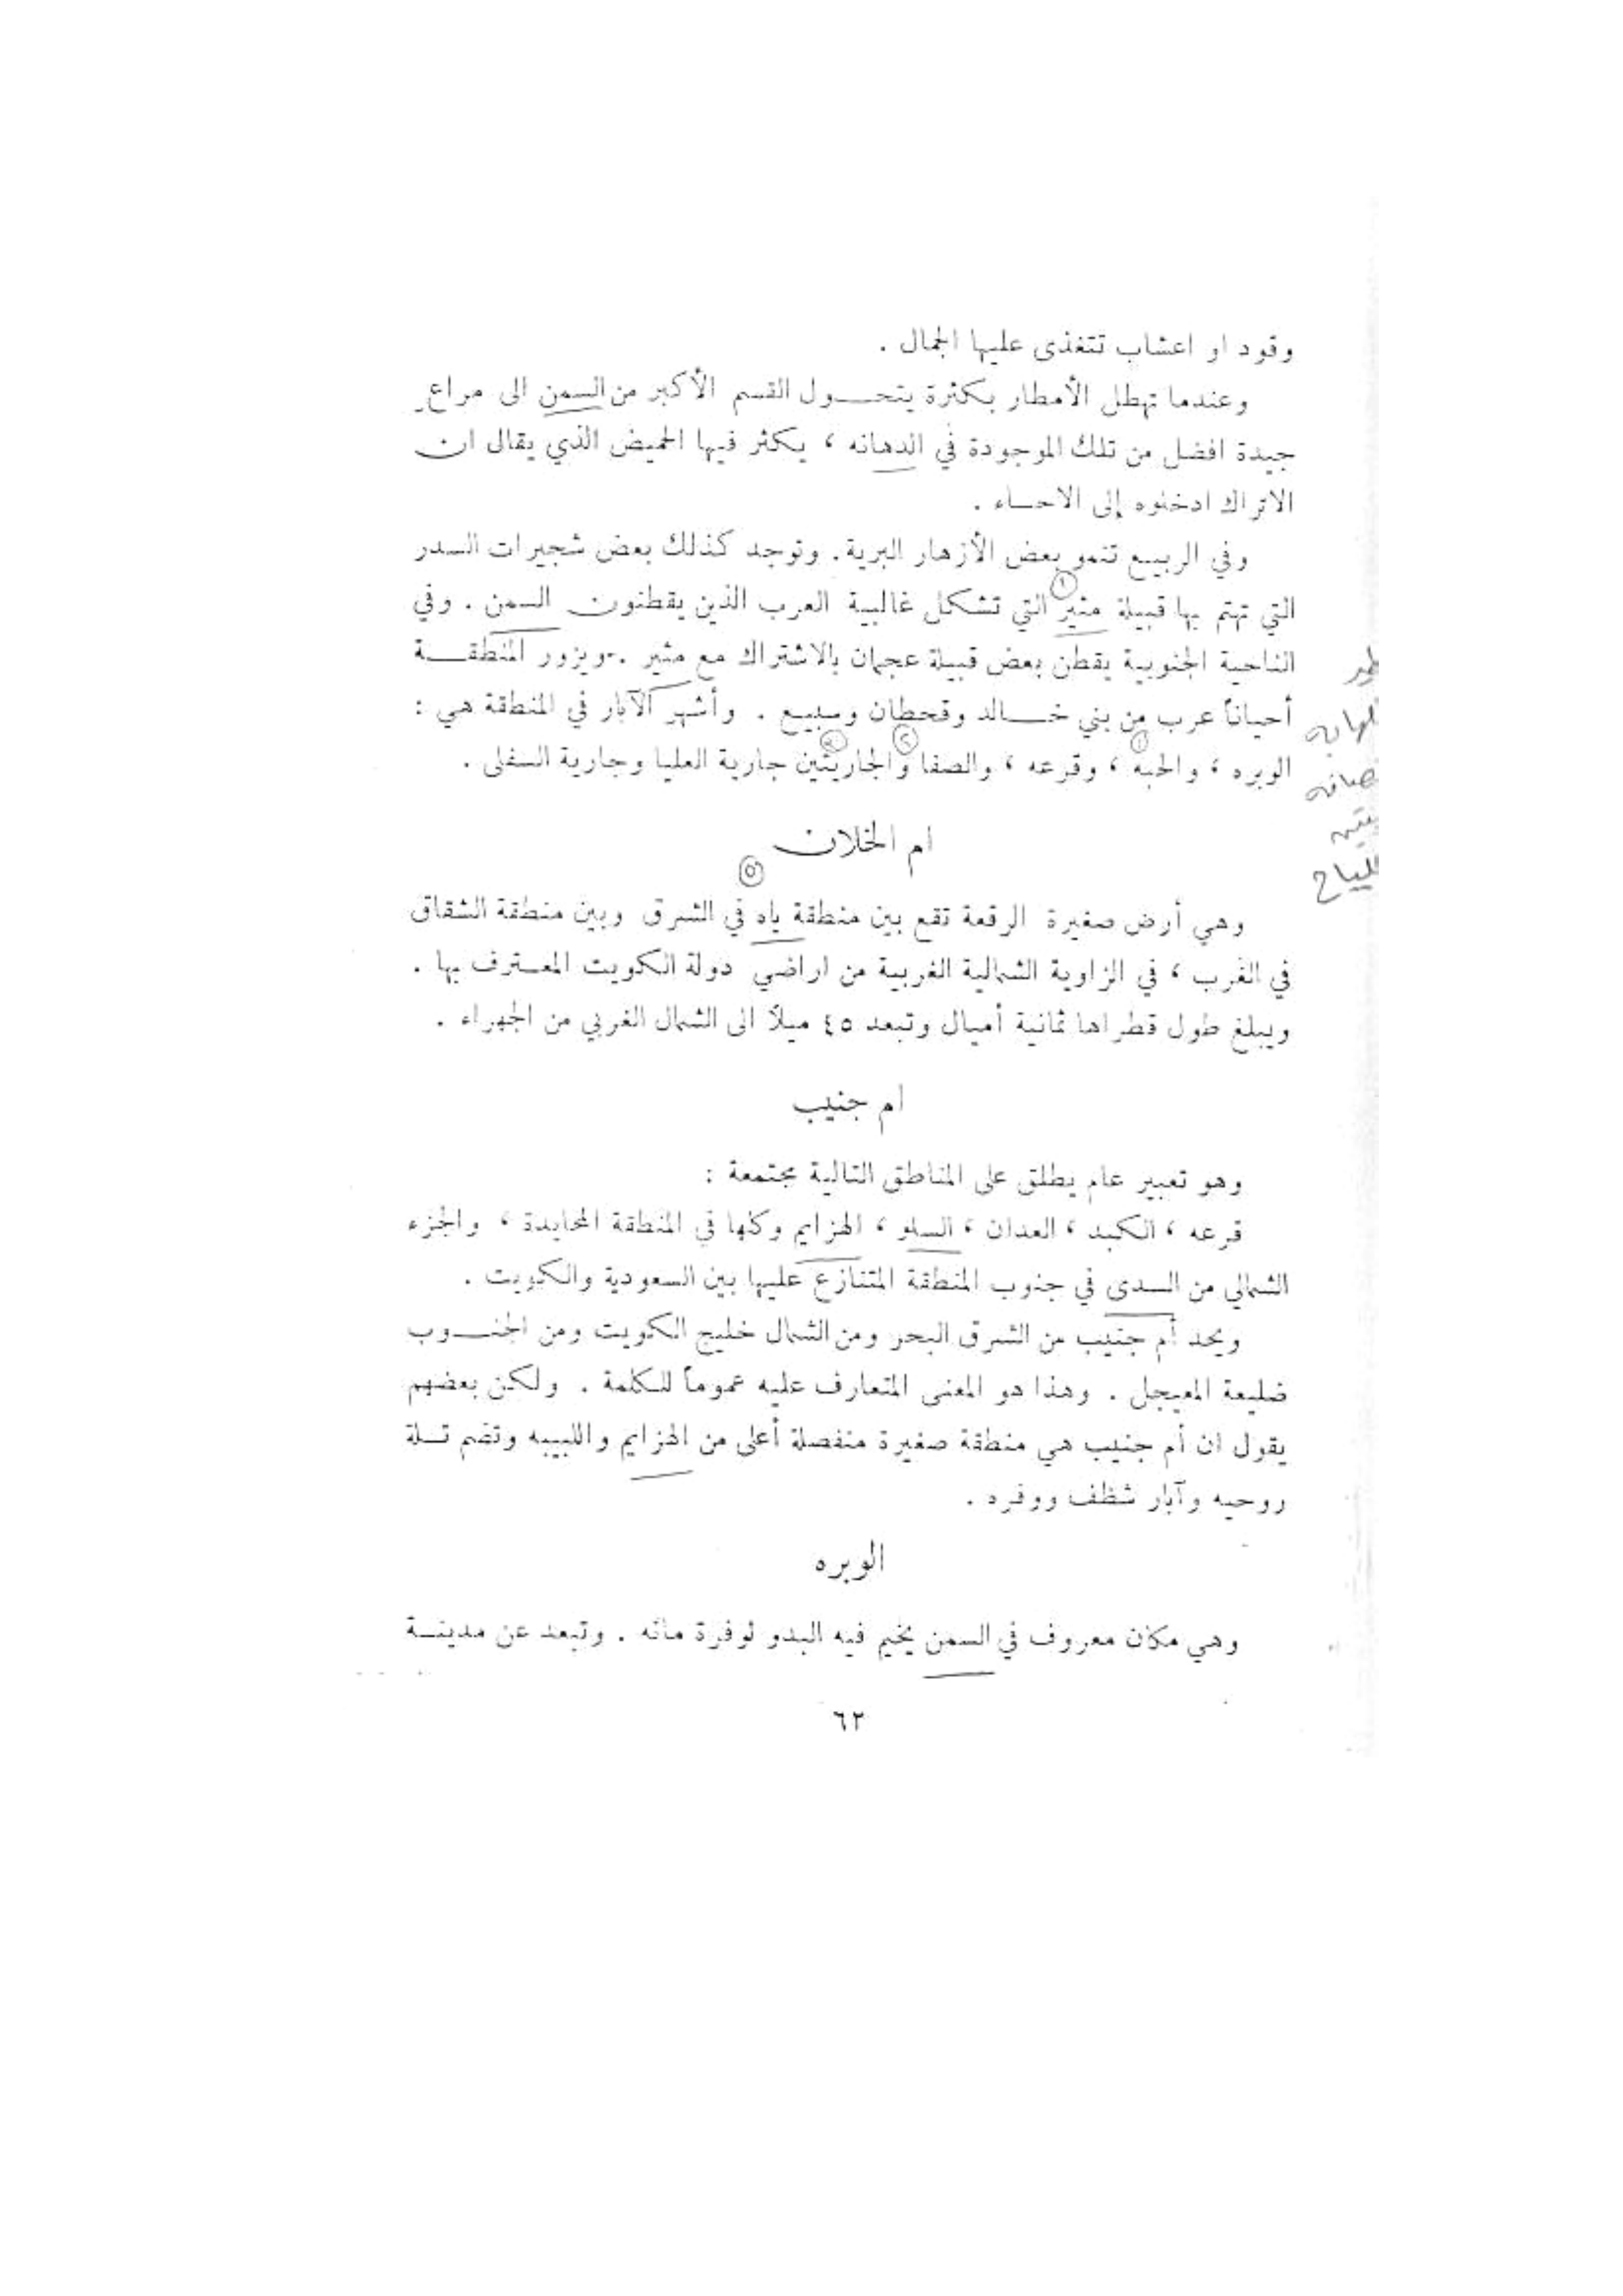 وقود او اعشاب تتغذى عليها الجمال .
وعندما تهطل الأمطار بكثرة يتحـــول القسم الأكبر من السمن الى مراع
جيدة افضل من تلك الموجودة في الدهانه ، يكثر فيها الحميض الذي يقال ان
الاتراك ادخلوه إلى الاحساء .
وفي الربيع تنمو بعض الأزهار البرية . وتوجد كذلك بعض شجيرات السدر
التي تهتم بها قبيلة مثير ① التي تشكل غالبية العرب الذين يقطنون السمن . وفي
الناحية الجنوبية يقطن بعض قبيلة عجمان بالاشتراك مع مثير . ويزور المنطقــة
أحياناً عرب من بني خـــالد وقحطان وسبيع . وأشهر الآبار في المنطقة هي :
الوبره ، والحبه ، وقرعه ، والصفا والجاريتين جارية العليا وجارية السفلى .
ام الخلان
وهي أرض صغيرة الرقعة تقع بين منطقة ياه في الشرق وبين منطقة الشقاق
في الغرب ، في الزاوية الشمالية الغربية من اراضي دولة الكويت المعــترف بها .
ويبلغ طول قطراها ثمانية أميال وتبعد ٤٥ ميلاً الى الشمال الغربي من الجهراء .
ام جنيب
وهو تعبير عام يطلق على المناطق التالية مجتمعة :
قرعه ، الكبد ، العدان ، السلو ، الهزايم وكلها في المنطقة المحايدة ، والجزء
الشمالي من السدى في جنوب المنطقة المتنازع عليها بين السعودية والكويت .
ويحد أم جنيب من الشرق البحر ومن الشمال خليج الكويت ومن الجنــوب
ضليعة المعيجل . وهذا هو المعنى المتعارف عليه عموماً للكلمة . ولكن بعضهم
يقول ان أم جنيب هي منطقة صغيرة منفصلة أعلى من الهزايم واللبيبه وتضم تــلة
روحيه وآبار شظف ووفره .
الوبره
وهي مكان معروف في السمن يخيم فيه البدو لوفرة مائه . وتبعد عن مدينــة
٦٢